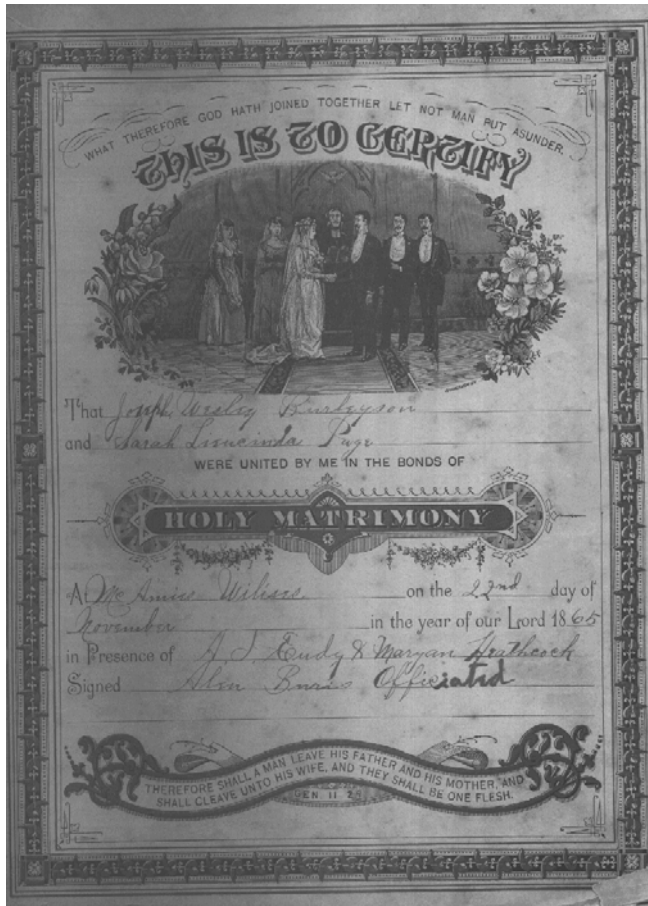 WHAT THEREFORE GOD HATH JOINED TOGETHER LET NOT MAN PUT ASUNDER.
THIS IS TO CERTIFY
That Joseph Wesley Burleyson
and Sarah Page
WERE UNITED BY ME IN THE BONDS OF
HOLY MATRIMONY
At on the 22nd day of
November in the year of our Lord 1865
in Presence of A J Eudy & Maryan Heathcock
Signed Officiated
THEREFORE SHALL A MAN LEAVE HIS FATHER AND HIS MOTHER, AND
SHALL CLEAVE UNTO HIS WIFE, AND THEY SHALL BE ONE FLESH.
GEN. II 24